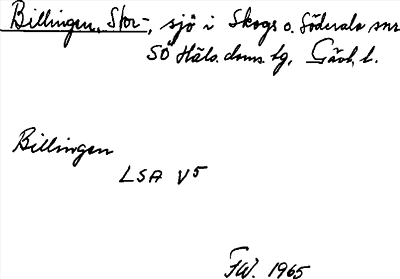 Billingen, Stor-, sjö i Skogs o. Söderala snr
SÖ Häls. doms. tg, Gävl. l.
Billingen
LSA V5
FW. 1965